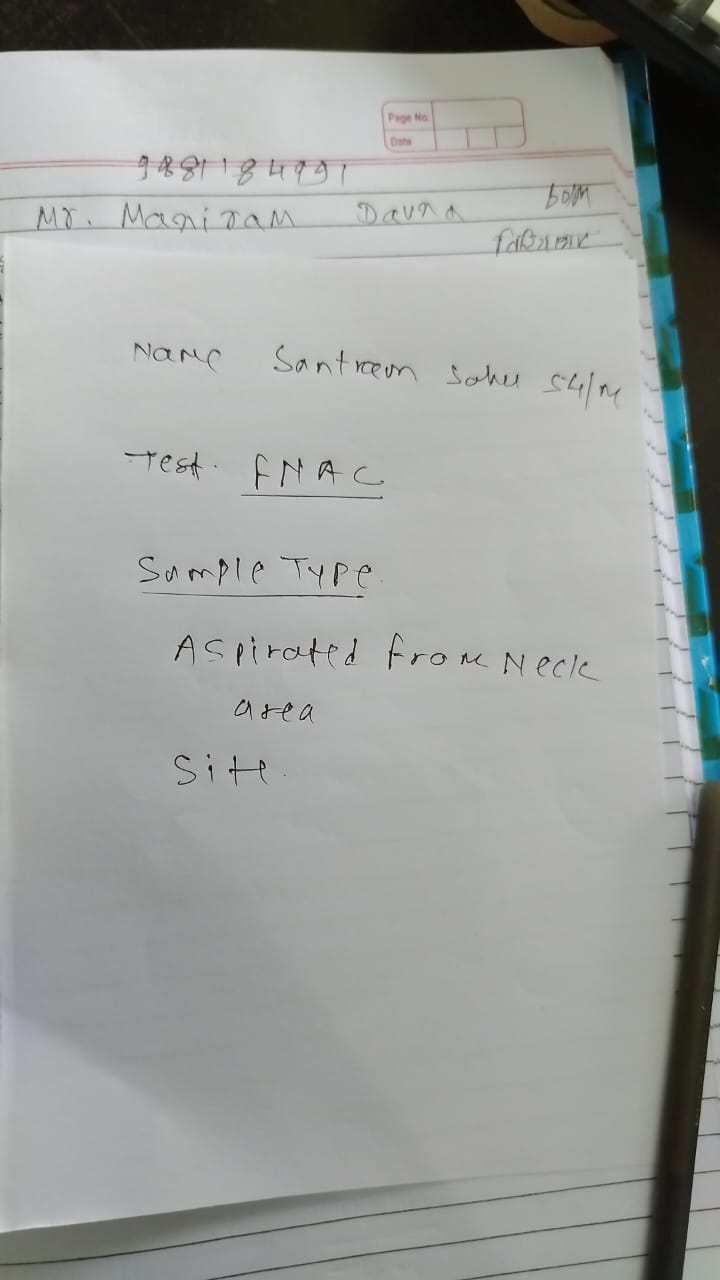 Page No.
Date
9881184991
Mr. Maniram Davna 60/M
Name Santram Sahu 54/M
Test. FNAC
Sample Type.
Aspirated from Neck
area
Site.